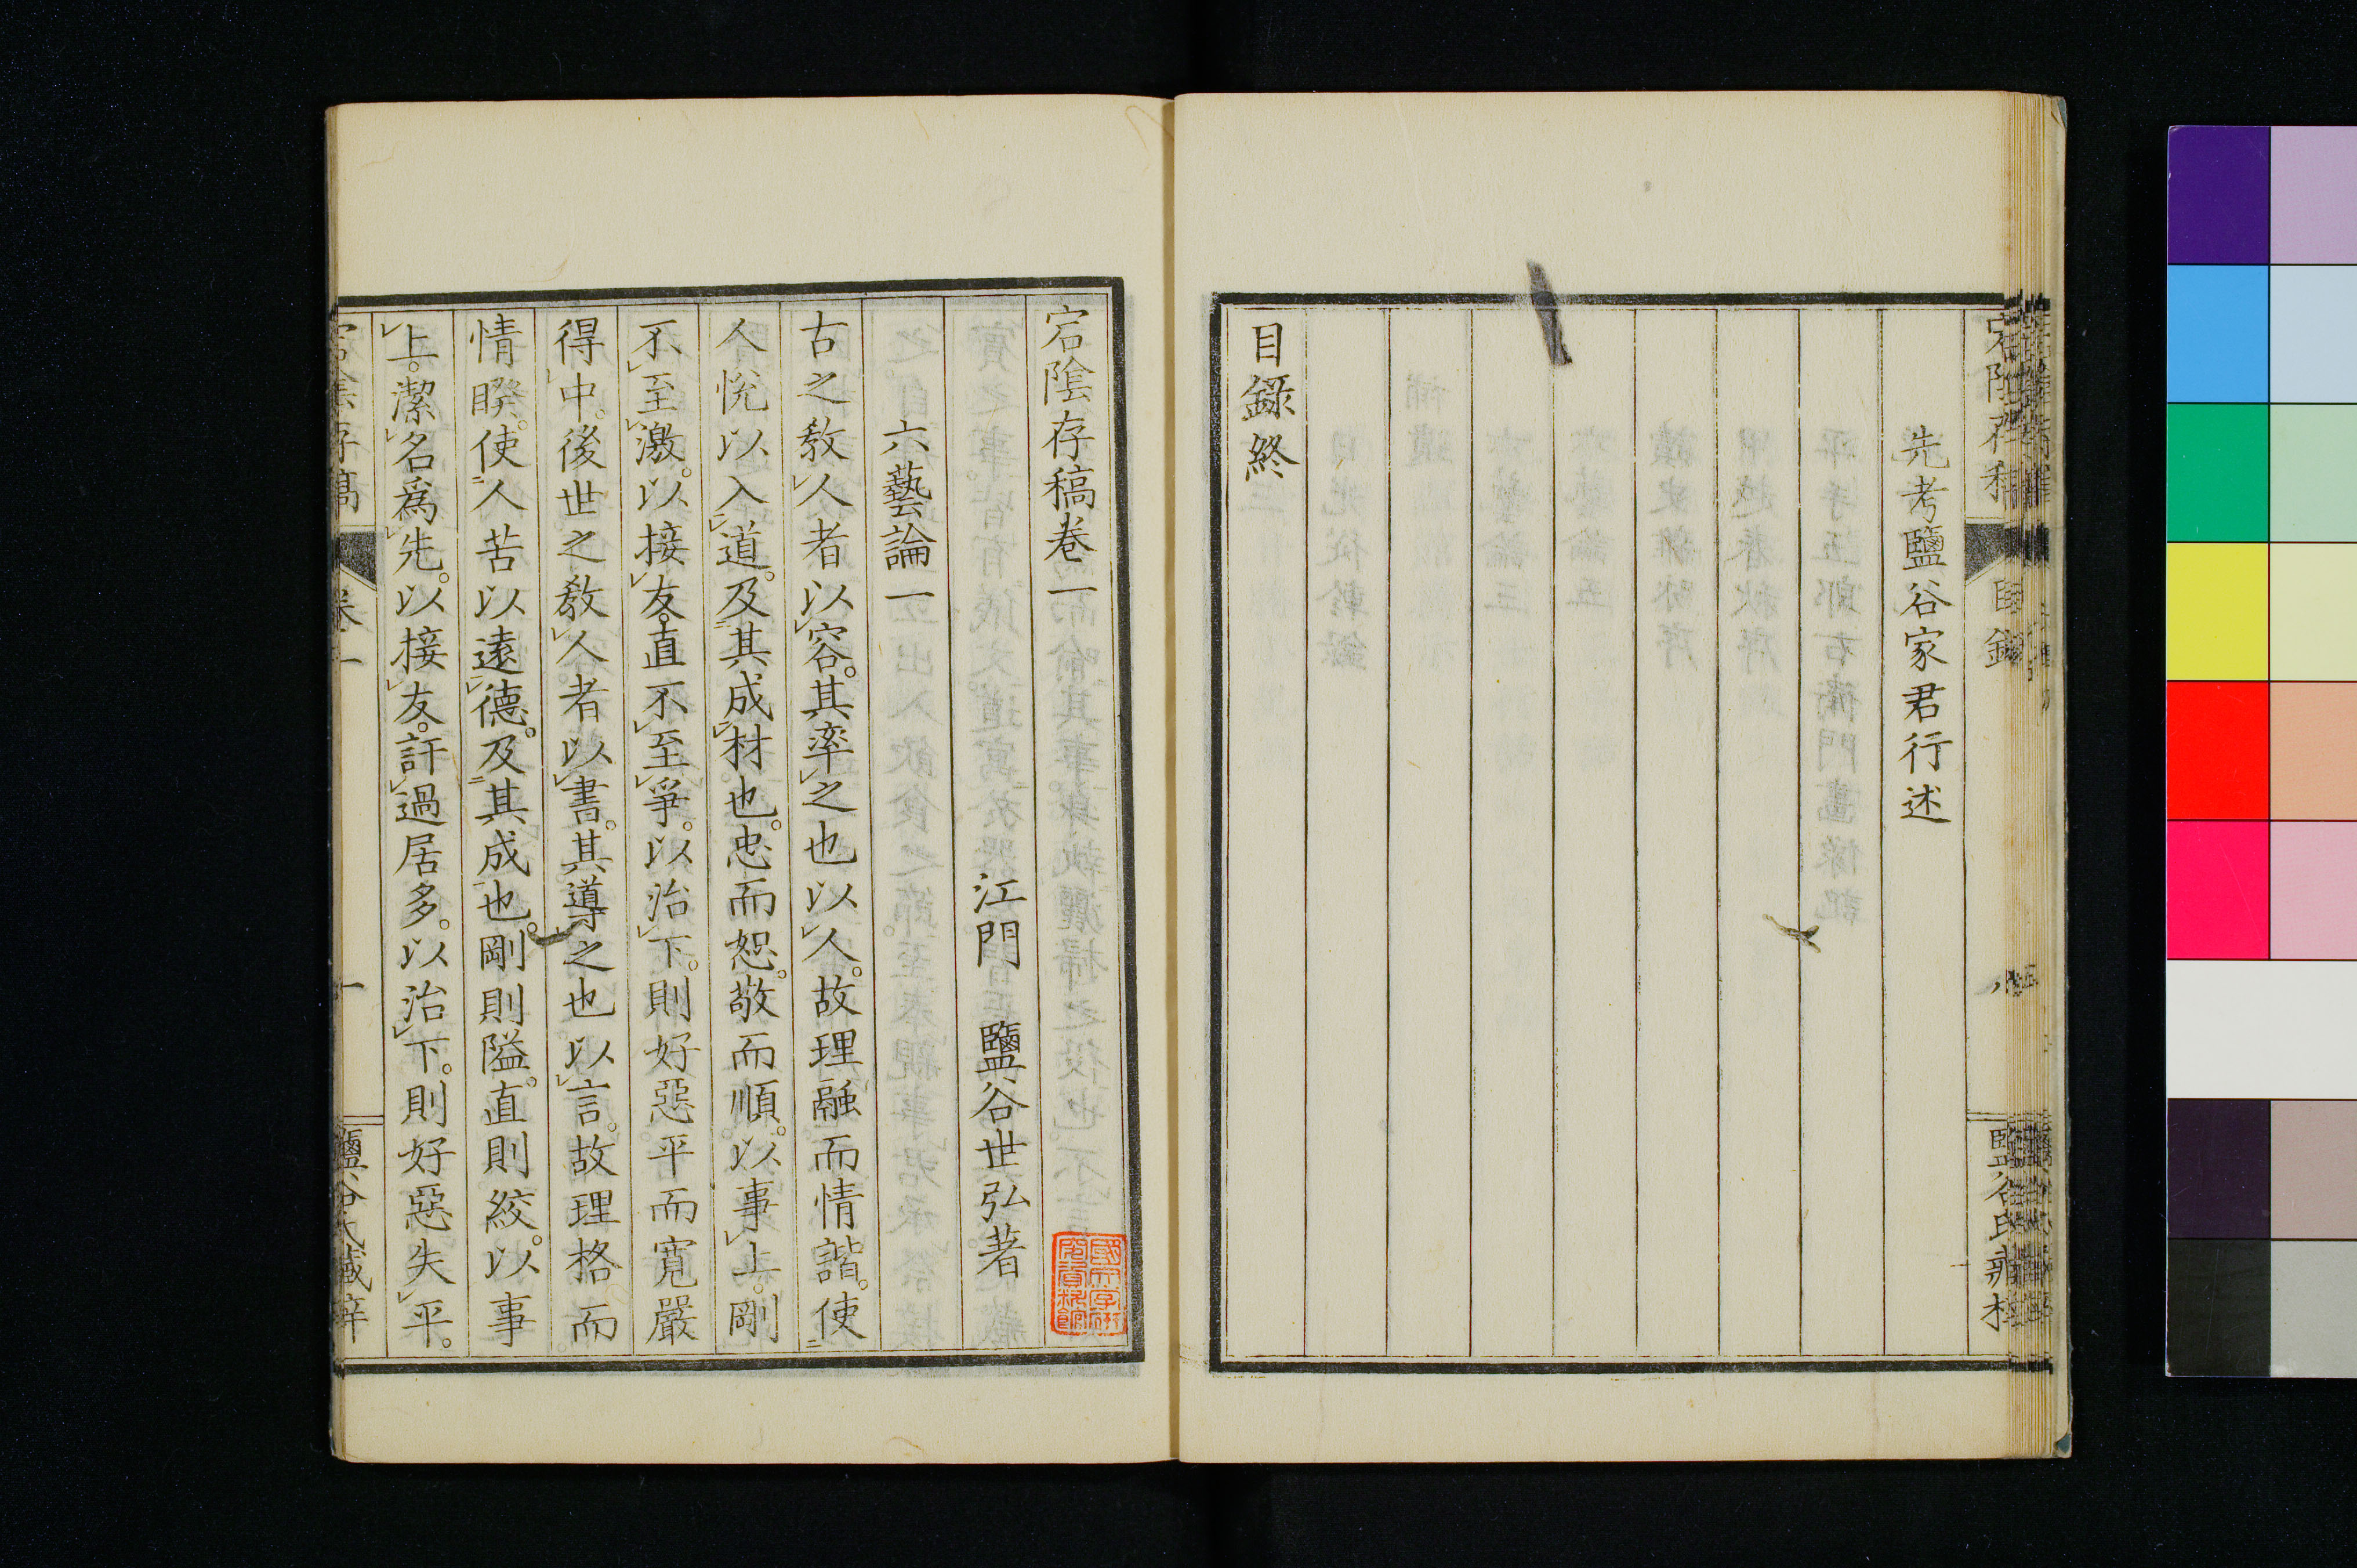 先考鹽谷家君行述
目錄終
宕陰存稿卷一
江門 鹽谷世弘著
六藝論一
古之敎人者以容。其率之也以人。故理融而情諧。使
人悅以入道。及其成材也。忠而恕。敬而順。以事上。剛
不至激。以接友。直不至爭。以治下。則好惡平而寬嚴
得中。後世之敎人者以書。其導之也以言。故理格而
情睽。使人苦以遠德。及其成也。剛則隘。直則絞。以事
上。潔名爲先。以接友。訐過居多。以治下。則好惡失平。
宕陰存稿 卷一 一 鹽谷氏藏梓